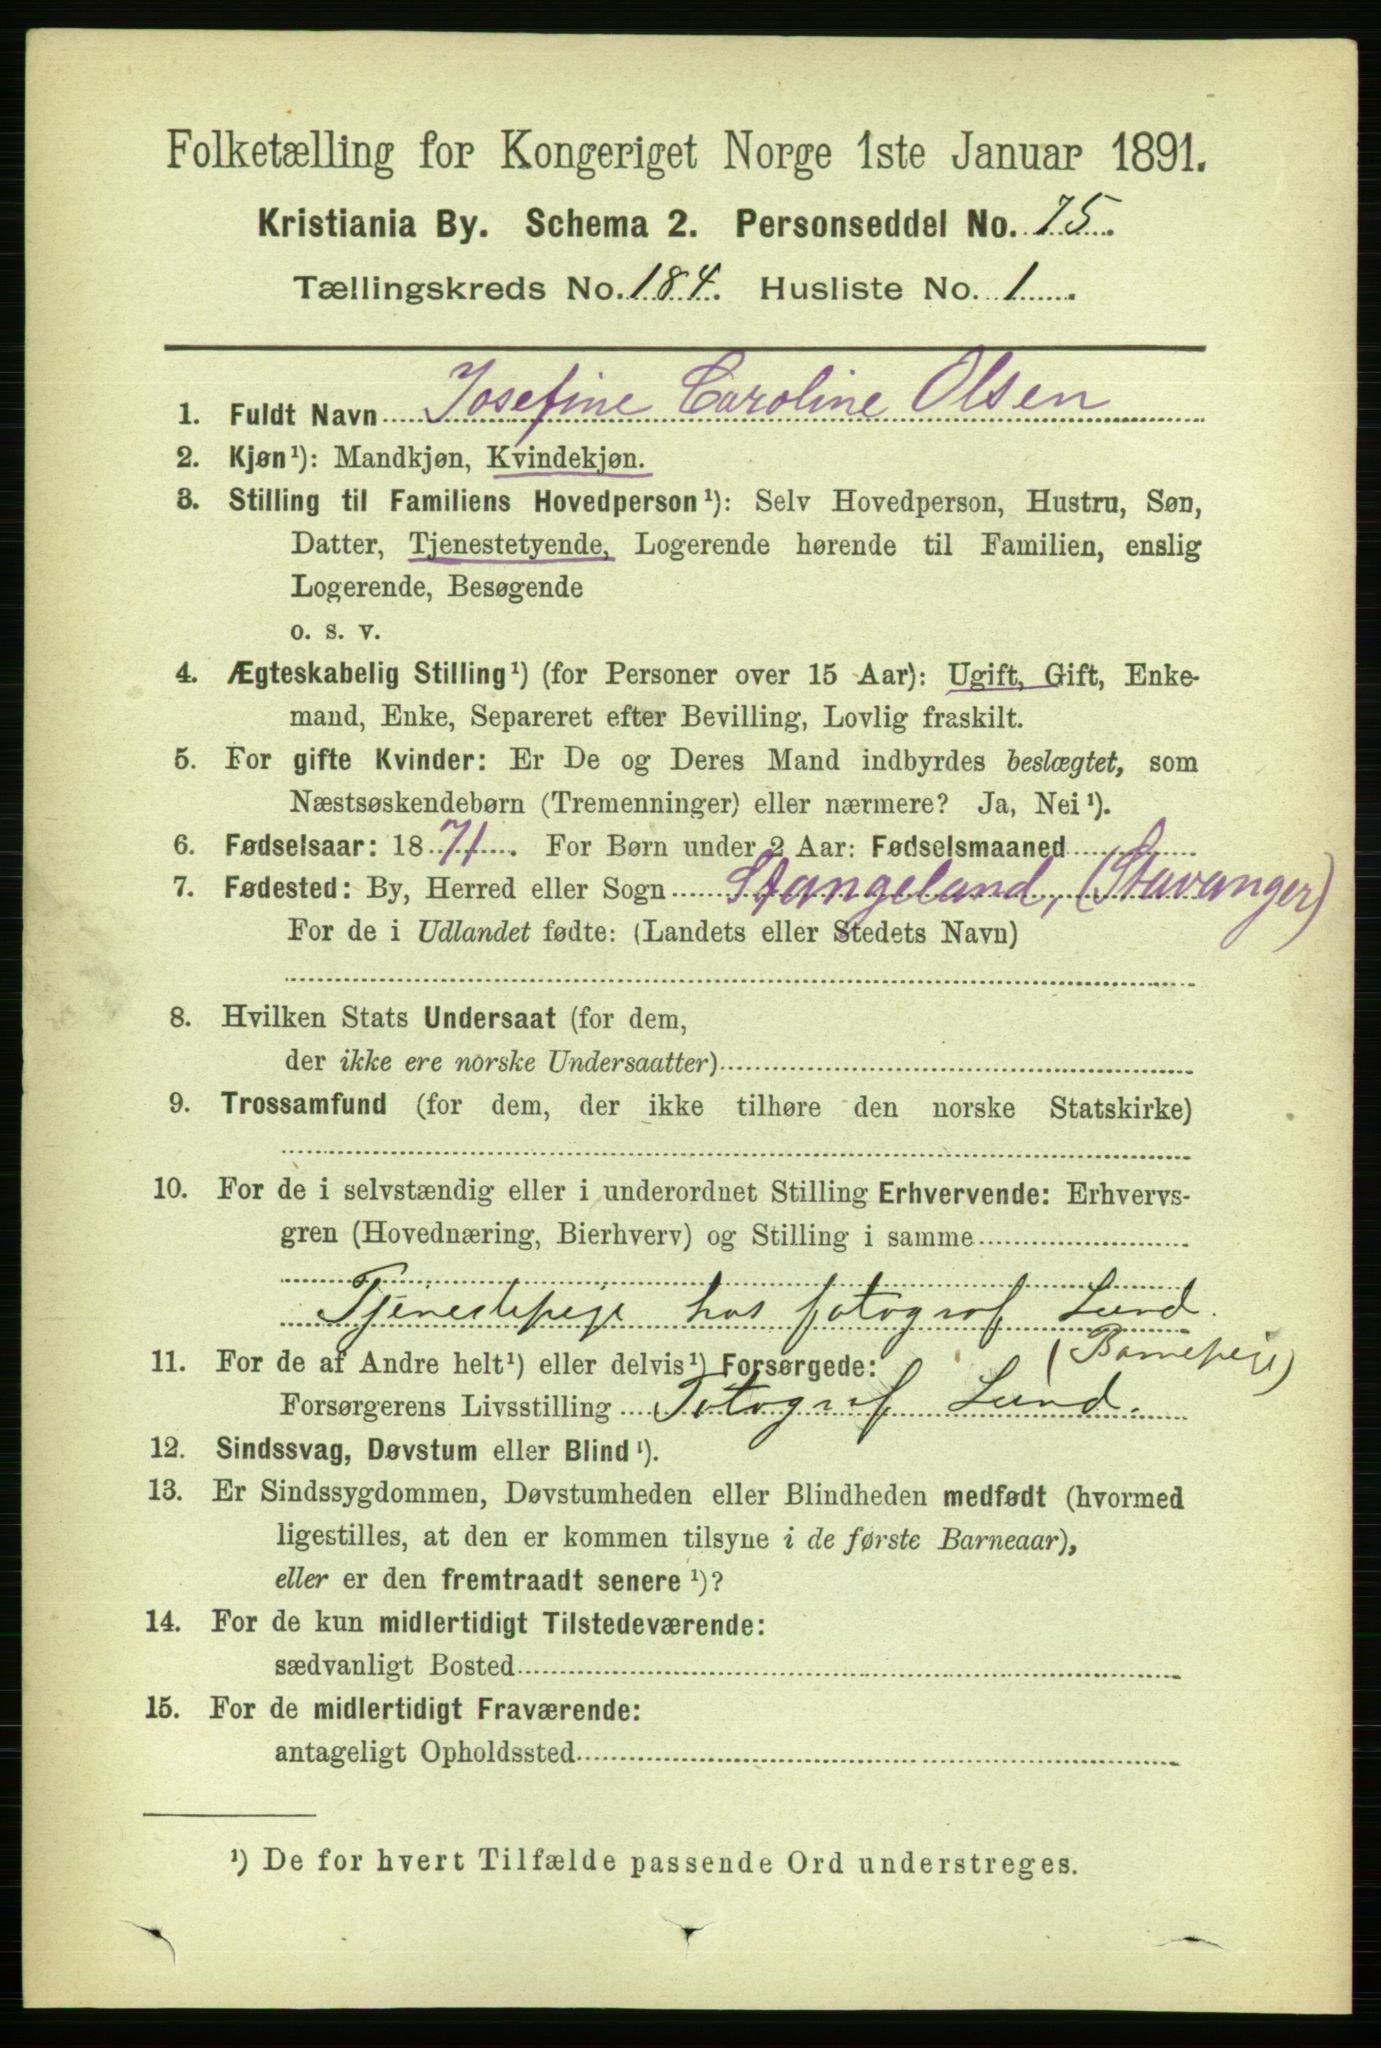 Folketælling for Kongeriget Norge 1ste Januar 1891.
Kristiania By. Schema 2. Personseddel No. 75.
Tællingskreds No. 184. Husliste No. 1.
1. Fuldt Navn Josefine Caroline Olsen
2. Kjøn¹): Mandkjøn, Kvindekjøn.
3. Stilling til Familiens Hovedperson¹): Selv Hovedperson, Hustru, Søn,
Datter, Tjenestetyende, Logerende hørende til Familien, enslig
Logerende, Besøgende
o. s. v.
4. Ægteskabelig Stilling¹) (for Personer over 15 Aar): Ugift, Gift, Enke-
mand, Enke, Separeret efter Bevilling, Lovlig fraskilt.
5. For gifte Kvinder: Er De og Deres Mand indbyrdes beslægtet, som
Næstsøskendebørn (Tremenninger) eller nærmere? Ja, Nei¹).
6. Fødselsaar: 1871. For Børn under 2 Aar: Fødselsmaaned
7. Fødested: By, Herred eller Sogn Stangeland, (Stavanger)
For de i Udlandet fødte: (Landets eller Stedets Navn)
8. Hvilken Stats Undersaat (for dem,
der ikke ere norske Undersaatter)
9. Trossamfund (for dem, der ikke tilhøre den norske Statskirke)
10. For de i selvstændig eller i underordnet Stilling Erhvervende: Erhvervs-
gren (Hovednæring, Bierhverv) og Stilling i samme
Tjenestepige hos fotograf Lund.
(Barnepige)
11. For de af Andre helt¹) eller delvis¹) Forsørgede:
Forsørgerens Livsstilling Fotograf Lund.
12. Sindssvag, Døvstum eller Blind¹).
13. Er Sindssygdommen, Døvstumheden eller Blindheden medfødt (hvormed
ligestilles, at den er kommen tilsyne i de første Barneaar),
eller er den fremtraadt senere¹)?
14. For de kun midlertidigt Tilstedeværende:
sædvanligt Bosted
15. For de midlertidigt Fraværende:
antageligt Opholdssted
¹) De for hvert Tilfælde passende Ord understreges.